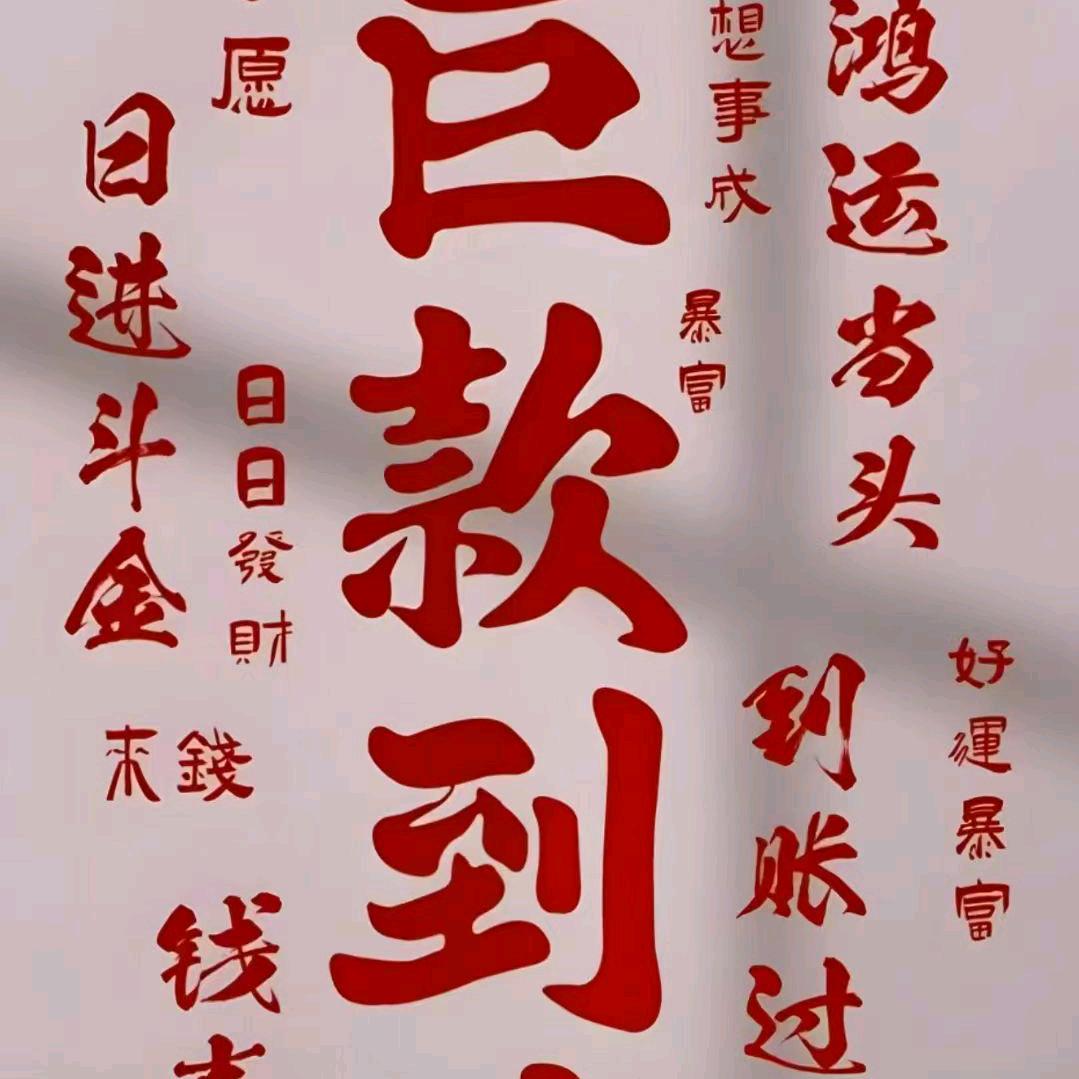 鸿运当头
好運暴富
想事成
暴富
到账过
巨款到
愿
日日發財
日进斗金
來錢
钱